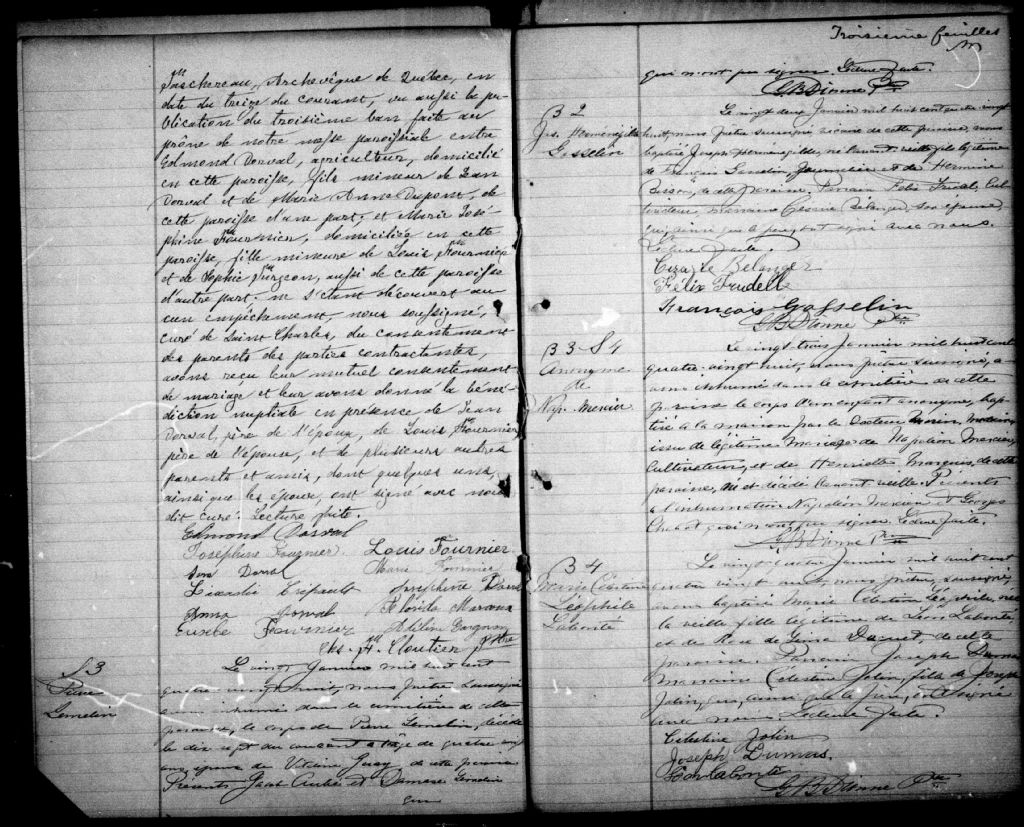 Taschereau, Archevêque de Québec, en
date du treize du courant, vu aussi la pu-
blication du troisième ban faite au
prône de notre messe paroissiale entre
Edmond Dorval, agriculteur, domicilié
en cette paroisse, fils mineur de Jean
Dorval et de Marie Anne Dupont, de
cette paroisse d'une part; et Marie José-
phine Fournier, domiciliée en cette
paroisse, fille mineure de Louis Fournier
et de Sophie Turgeon, aussi de cette paroisse
d'autre part. ne s'étant découvert au-
cun empêchement, nous soussigné,
curé de Saint Charles, du consentement
des parents des parties contractantes,
avons reçu leur mutuel consentement
de mariage et leur avons donné la béné-
diction nuptiale en présence de Jean
Dorval, père de l'époux, de Louis Fournier
père de l'épouse, et de plusieurs autres
parents et amis, dont quelques uns,
ainsi que les époux, ont signé avec nous
dit curé. Lecture faite.
Edmond Dorval
Josephine Fournier Louis Fournier
Jean Dorval Marie Fournier
Josephine Dorval
Anna Dorval
Eusebe Fournier
Cloutier Ptre
S 3
Pierre
Lemelin
Le vingt Janvier mil huit cent
quatre vingt huit, nous prêtre soussigné
avons inhumé dans le cimetière de cette
paroisse, le corps de Pierre Lemelin, décédé
le dix sept du courant à l'âge de quatre vingt
ans, époux de Vitaline Guay, de cette paroisse
Présents Jacob Audet et Damase Lemelin
qui
Troisième feuillet
qui n'ont pu signer. Lecture faite.
G B Dionne Ptre
B 2
Jos. Herménégilde
Gosselin
Le vingt deux Janvier mil huit cent quatre vingt
huit, nous prêtre soussigné vicaire de cette paroisse, avons
baptisé Joseph Herménégilde, né l'avant veille, fils légitime
de François Gosselin, Journalier et de Hermine
de cette paroisse. Parrain Felix Trudel, Cul-
tivateur, marraine Césarie Bélanger, son épouse,
qui, ainsi que le père, ont signé avec nous.
Lecture faite.
Cezarie Belanger
Félix Trudell
François Gosselin
G B Dionne Ptre
B 3-S 4
Anonyme
de
Nap. Mercier
Le vingt trois janvier mil huit cent
quatre-vingt huit, nous prêtre soussigné, a-
vons inhumé dans le cimetière de cette
paroisse le corps d'un enfant anonyme, bap-
tisé à la maison par le Docteur Morin, médecin,
issu de légitime mariage de Napoléon Mercier,
Cultivateur, et de Henriette Marquis, de cette
paroisse, né et décédé l'avant veille. Présents
à l'inhumation Napoléon Mercier et Georges
Chabot qui n'ont pu signer. Lecture faite.
G B Dionne Ptre
B 4
Marie Célestine
Léophile
Labonté
Le vingt quatre Janvier mil huit cent
quatre vingt huit, nous prêtre soussigné,
avons baptisé Marie Célestine Léophile, née
la veille, fille légitime de Léon Labonté,
et de Rose de Lima de cette
paroisse. Parrain Joseph Dumas
Marraine Célestine Jolin, fille de Joseph
Jolin, qui, ainsi que le père, ont signé
avec nous. Lecture faite.
Célestine Jolin
Joseph Dumas
Léon Labonté
G B Dionne Ptre